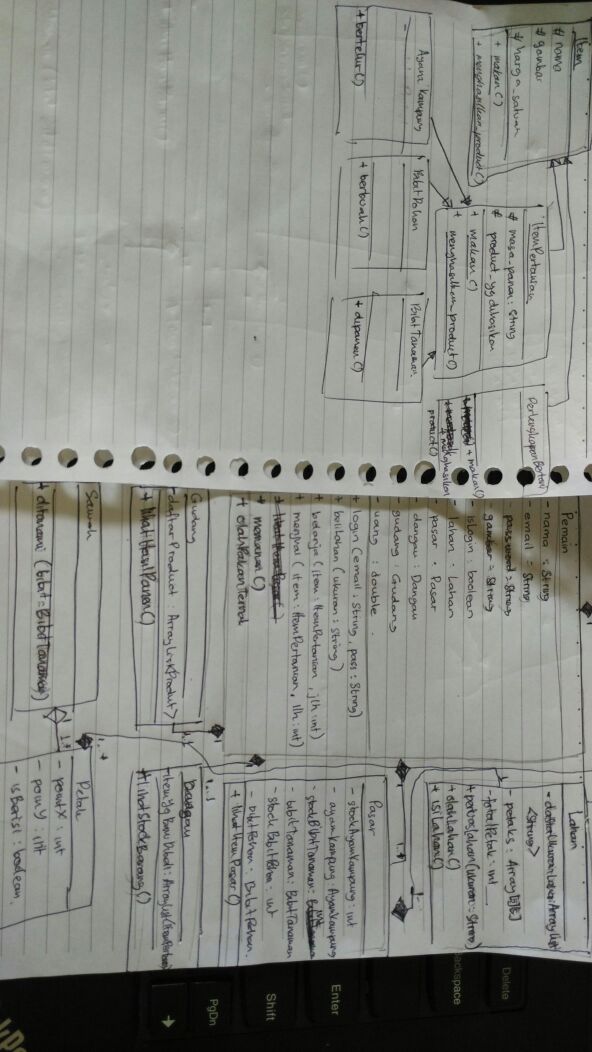 Item
# nama
# gambar
# harga_satuan
+ makan()
+ menghasilkan_product()
ItemPertanian
# masa_panen : String
# product_yg dihasilkan
+ makan()
+ menghasilkan product()
PerlengkapanBertani
+ makan()
+ menghasilkan
product()
Ayam Kampung
-
+ bertelur()
Bibit Pohon
+ berbuah()
Bibit Tanaman
+ dipanen()
Pemain
- nama : String
- email : String
- password : String
- gambar : String
- isLogin : boolean
- lahan : Lahan
- pasar : Pasar
- dangau : Dangau
- gudang : Gudang
- uang : double
+ login (email : String, pass : String)
+ beliLahan (ukuran : String)
+ belanja (item : ItemPertanian, jlh : int)
+ menjual (item : ItemPertanian, jlh : int)
+ memanen ()
+ olahPakanTernak
Gudang
- daftarProduct : ArrayList<Product>
+ lihatHasilPanen()
Sawah
+ ditanami (bibit : BibitTanaman)
Lahan
- daftarUkuranLahan : ArrayList
<String>
- petaks : Array[][]
- totalPetak : int
+ perluasLahan (ukuran : String)
+ olahLahan()
+ isiLahan()
Pasar
- stockAyamKampung : int
- ayamKampung : AyamKampung
- stockBibitTanaman : int
- bibitTanaman : BibitTanaman
- stockBibitPohon : int
- bibitPohon : BibitPohon
+ lihatItemPasar()
1..1
Dangau
- itemYgBaruDibeli : ArrayList<ItemPertanian>
+ lihatStockBarang()
1..*
Petak
- pointX : int
- poinY : int
- isBerisi : boolean
Delete
Backspace
Enter
Shift
PgDn